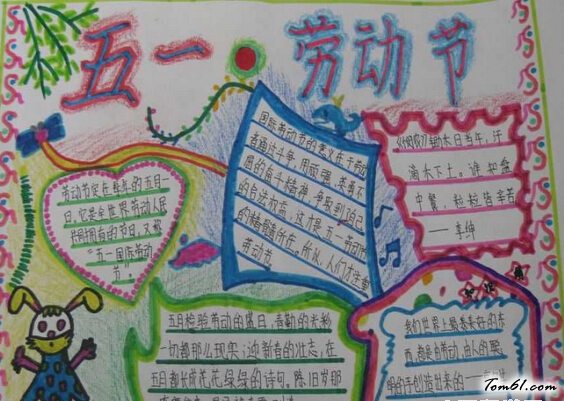 五一劳动节
劳动节定在每年的五月一
日,它是全世界劳动人民
共同拥有的节日,又称
“五一国际劳动
节”
国际劳动节的意义在于劳动
者通过斗争,用顽强、英勇不
屈的奋斗精神,争取到自己
的合法权益,这才是五一劳动节
的精髓所在。所以,人们才注重
劳动节
《悯农》锄禾日当午,汗
滴禾下土。谁知盘
中餐,粒粒皆辛苦
——李绅
五月检验劳动的盛日,青勤的光彩
一切都那么现实;迎新春的壮志,在
五月都长成花花绿绿的诗句。陈旧岁那
我们世界上最美好的东
西,都是由劳动、由人的聪
明的手创造出来的——
www.
Tom61.com